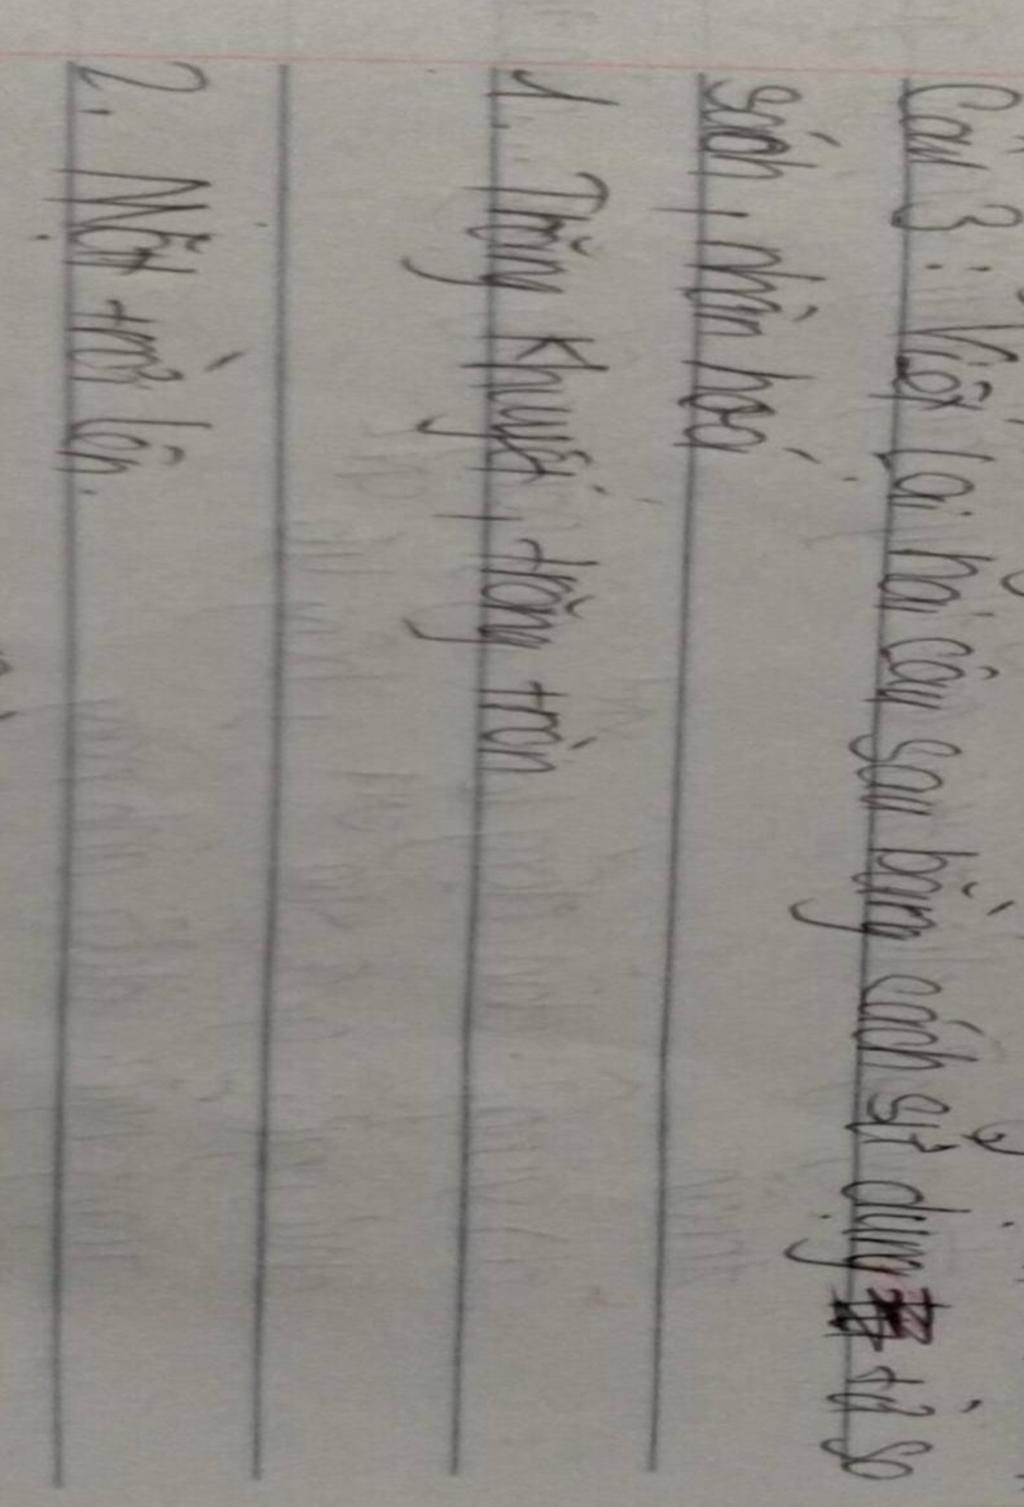 Câu 3: Viết lại hai câu sau bằng cách sử dụng từ so
sánh, nhân hoá
1. Trăng khuyết, trăng tròn
2. Mặt trời lên.